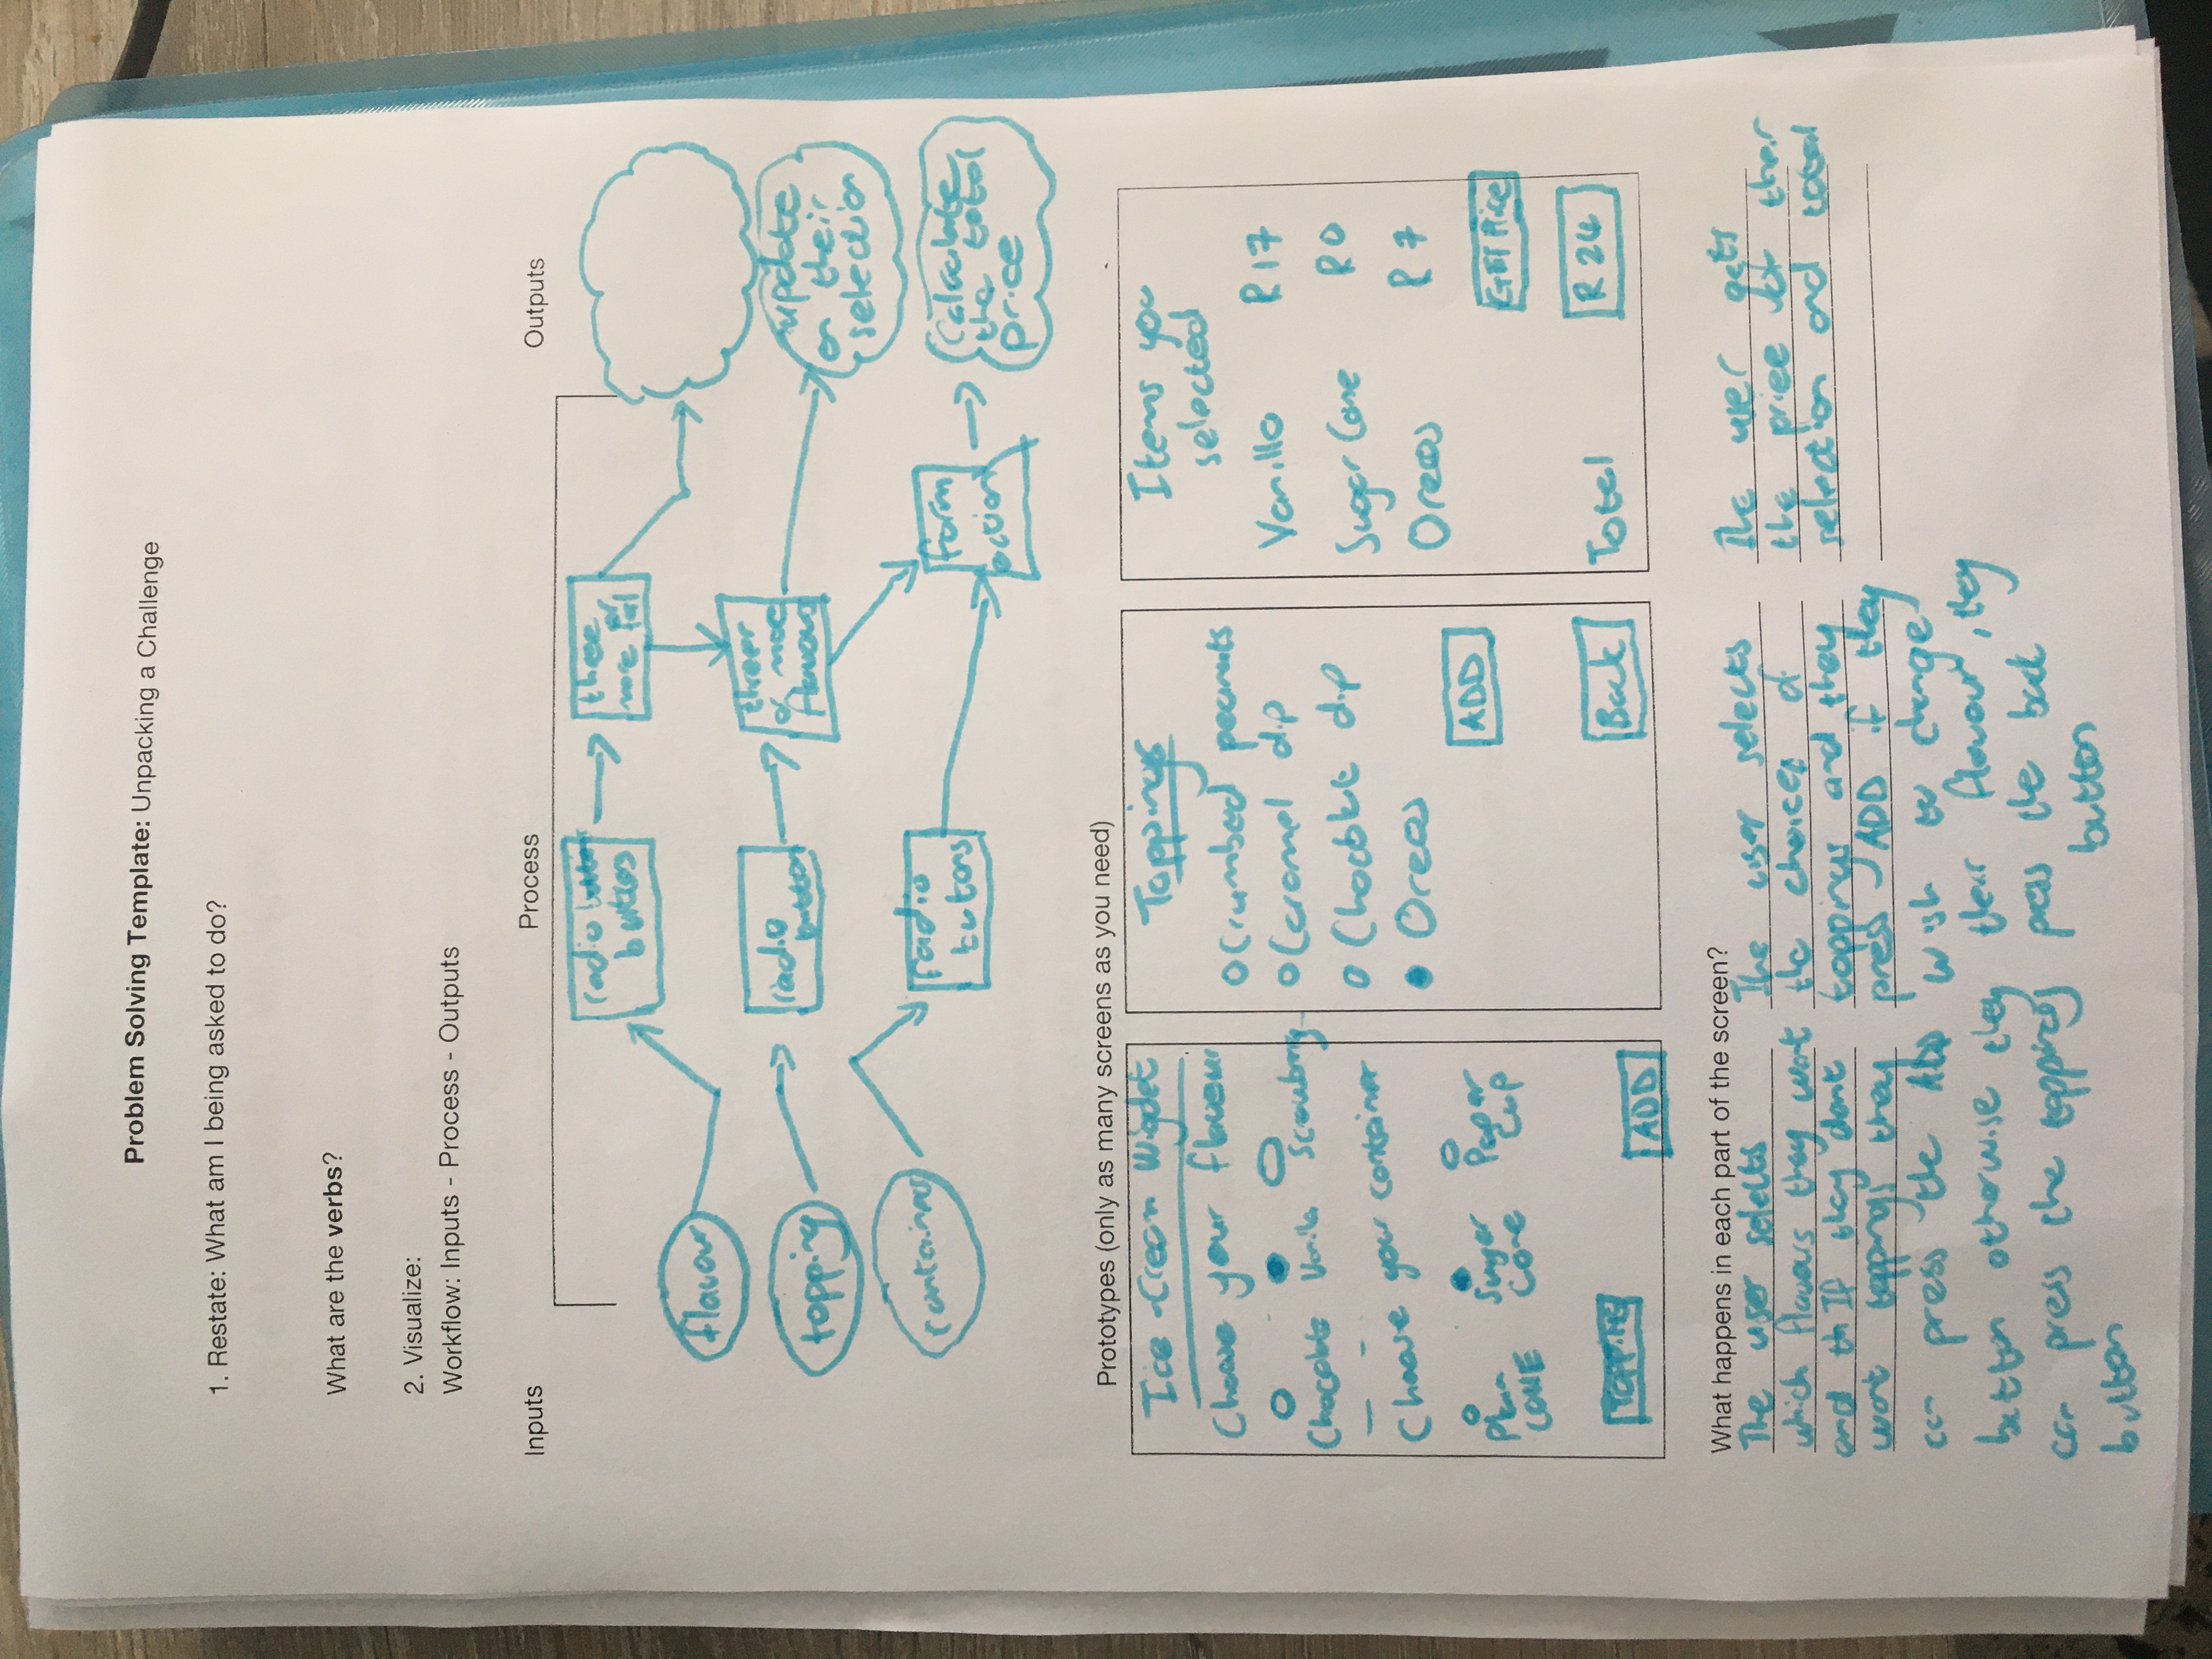 Problem Solving Template: Unpacking a Challenge
1. Restate: What am I being asked to do?
What are the verbs?
2. Visualize:
Workflow: Inputs - Process - Outputs
Inputs
Process
Outputs
flavour
radio
buttons
three
or
more
topping
radio
button
threer
or more
flavours
update
on their
selection
container
radio
butons
form
action
Calculate
the total
price
Prototypes (only as many screens as you need)
Ice-Cream Wigdet
Choose your flavour
Chocolate Vanila
Choose your container
Plain
CONE
Sugar
Cone
Paper
Cup
Topping
ADD
Toppings
Crumbed peanuts
Caramel dip
dip
Oreos
ADD
Back
Items you
selected
Vanilla R 17
Sugar Cone R 0
Oreos R 7
GET Price
Total R 24
What happens in each part of the screen?
The user selects
which flavours they want
and th If they dont
want toppings they
can press the ADD
button otherwise they
can press the toppings
button
The user selects
the choices of
toppings and they
press ADD if they
wish to change
their flavour, they
press the back
button
The user gets
the price of their
selection and total